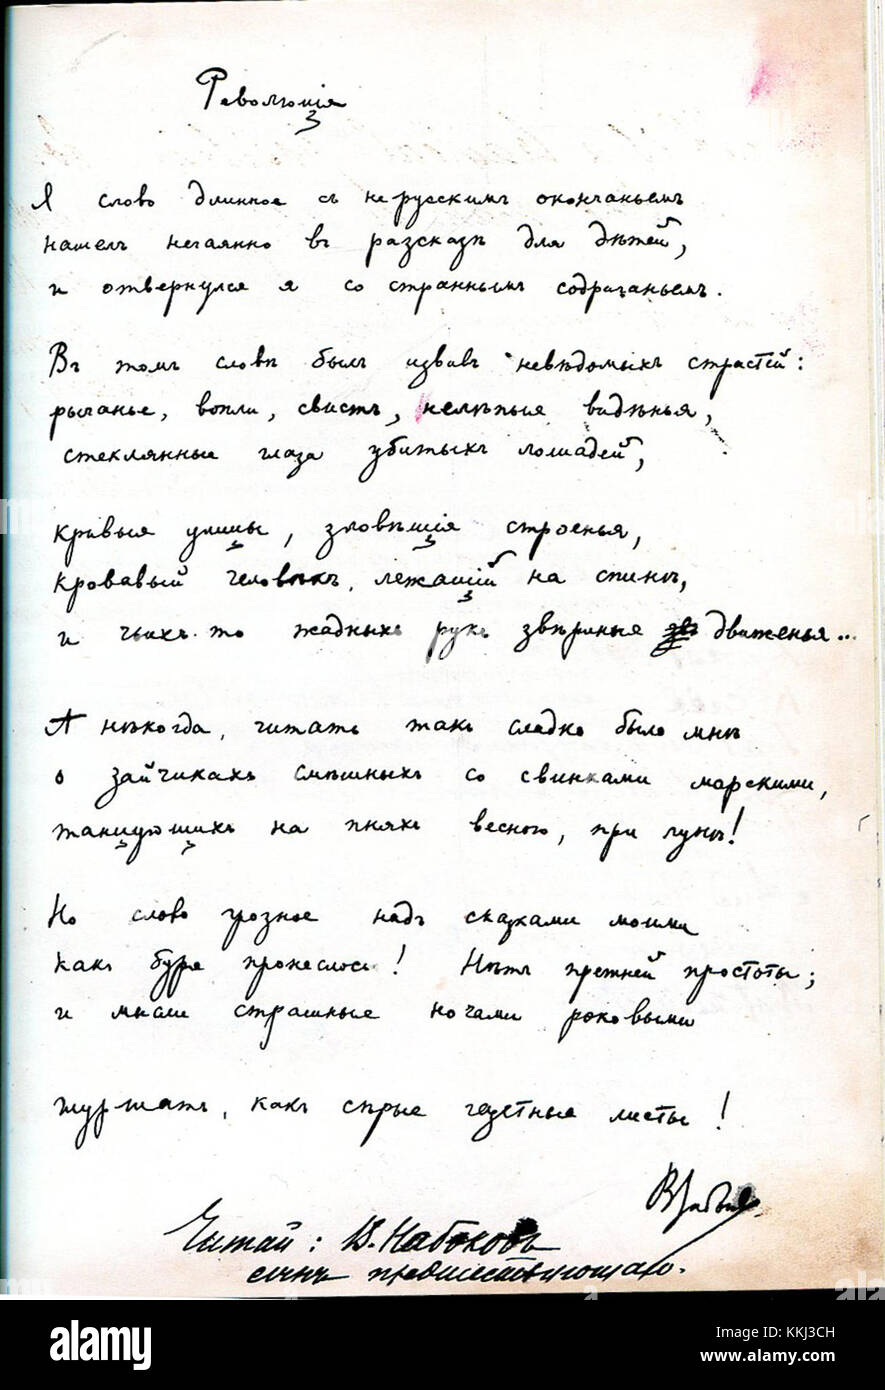 Революцiя
Я слово длинное съ нерусскимъ окончаньемъ
нашелъ нечаянно въ разсказѣ для дѣтей,
и отвернулся я со страннымъ содраганьемъ.
Въ томъ словѣ былъ извивъ невѣдомыхъ страстей:
рычанье, вопли, свистъ, нелѣпыя видѣнья,
стеклянные глаза убитыхъ лошадей,
кривыя улицы, зловѣщiя строенья,
кровавый человѣкъ, лежащiй на спинѣ,
и чьихъ-то жадныхъ рукъ звѣриные движенья...
А нѣкогда, читать такъ сладко было мнѣ
о зайчикахъ смѣшныхъ со свинками морскими,
танцующихъ на пняхъ весною, при лунѣ!
Но слово грозное надъ сказками моими
какъ буря пронеслось! Нѣтъ прежней простоты;
и мысли страшныя ночами роковыми
шуршатъ, какъ сѣрые газетные листы!
Читай: В. Набоковъ
сынъ предшествующаго.
alamy
Image ID: KKJ3CH
www.alamy.com